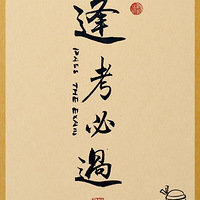 逢考必過
PASS THE EXAM